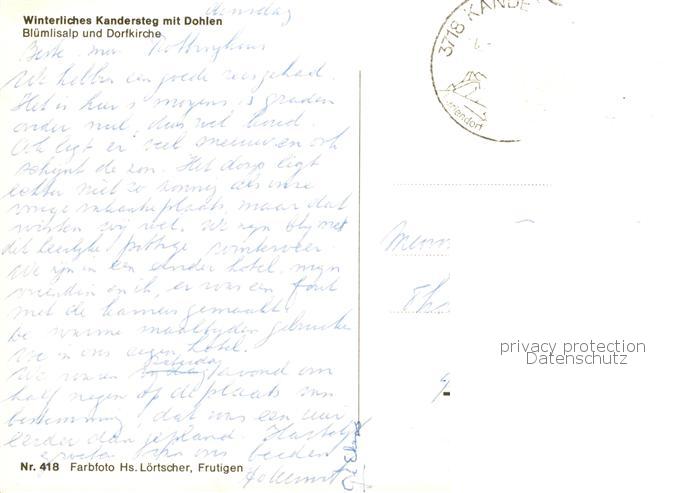 Winterliches Kandersteg mit Dohlen
Blümlisalp und Dorfkirche
dinsdag
Beste mevr.
We hebben een goede reis gehad.
Het is hier 's morgens graden
onder nul, dus wel koud.
Ook ligt er veel sneeuw en ook
schijnt de zon. Het dorp ligt
echter niet zo zonnig als onze
vorige vakantieplaats, maar dat
wisten wij wel. We zijn blij met
dit heerlijke pittige winterweer.
We zijn in een ander hotel, mijn
vriendin en ik, er was een fout
met de kamers gemaakt.
De warme maaltijden gebruiken
we in ons eigen hotel.
We waren zaterdag avond om
half negen op de plaats van
bestemming, dat was een uur
eerder dan gepland. Hartelijke
groeten van ons beiden
Nr. 418 Farbfoto Hs. Lörtscher, Frutigen
3718 KANDE
Feriendorf
privacy protection
Datenschutz